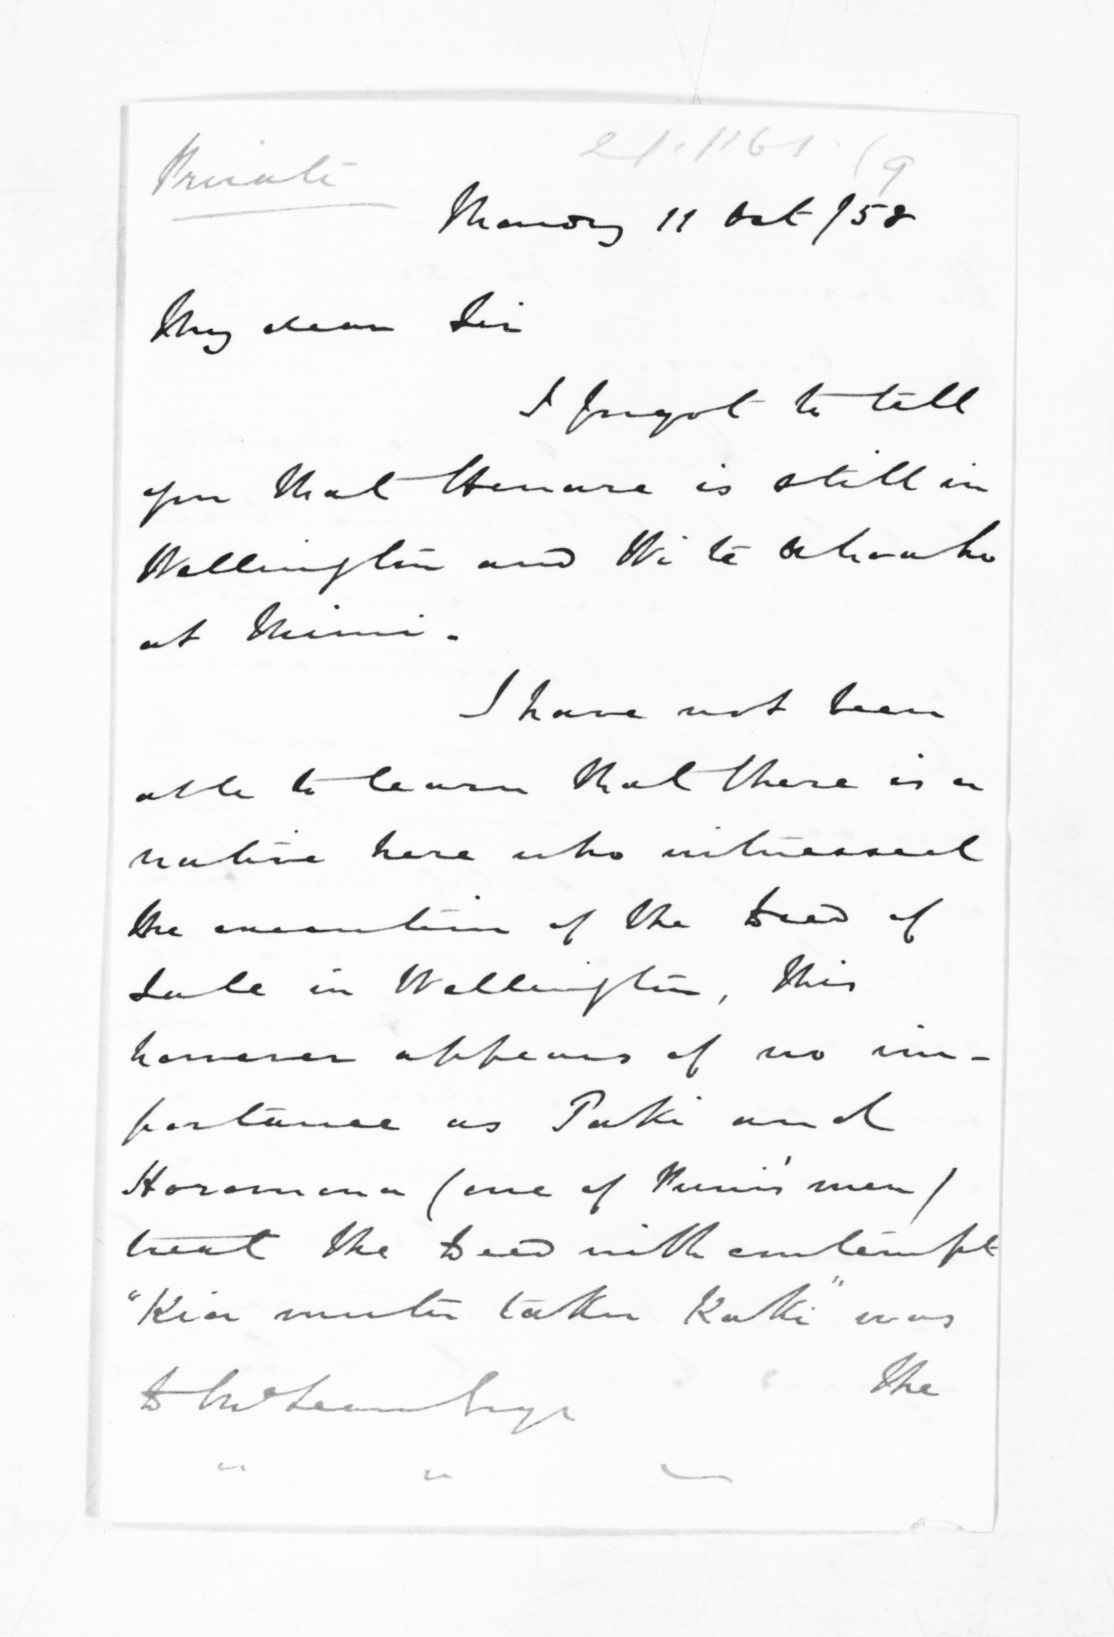 Private
Monday 11 Oct /58
My dear Sir
I forgot to tell
you that Henare is still in
Wellington and Wi te Ahoaho
at Mimi.
I have not been
able to learn that there is a
native here who witnessed
the execution of the Deed of
Sale in Wellington, This
however appears of no im-
portance as Taki and
Horomona (one of Puni's men)
treat the Deed with contempt
"Kia mutu taku Kaki" was
the
D McLean Esqr
" " "